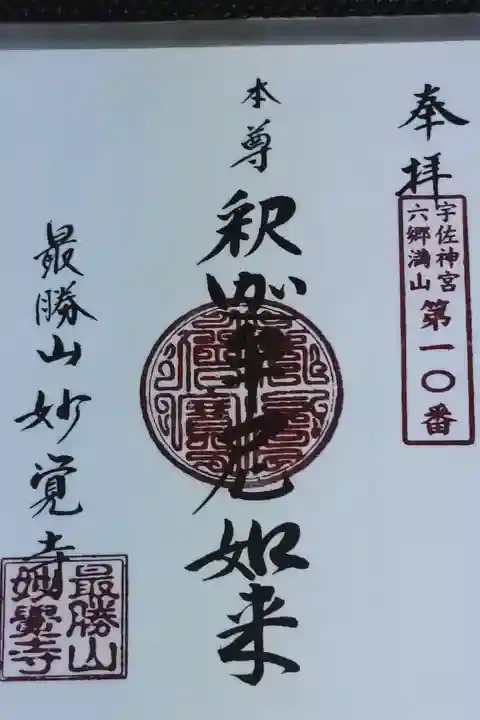 奉拝
宇佐神宮
六郷満山
第一〇番
本尊
釈迦牟尼如来
最勝山妙覚寺
最勝山
妙覺寺